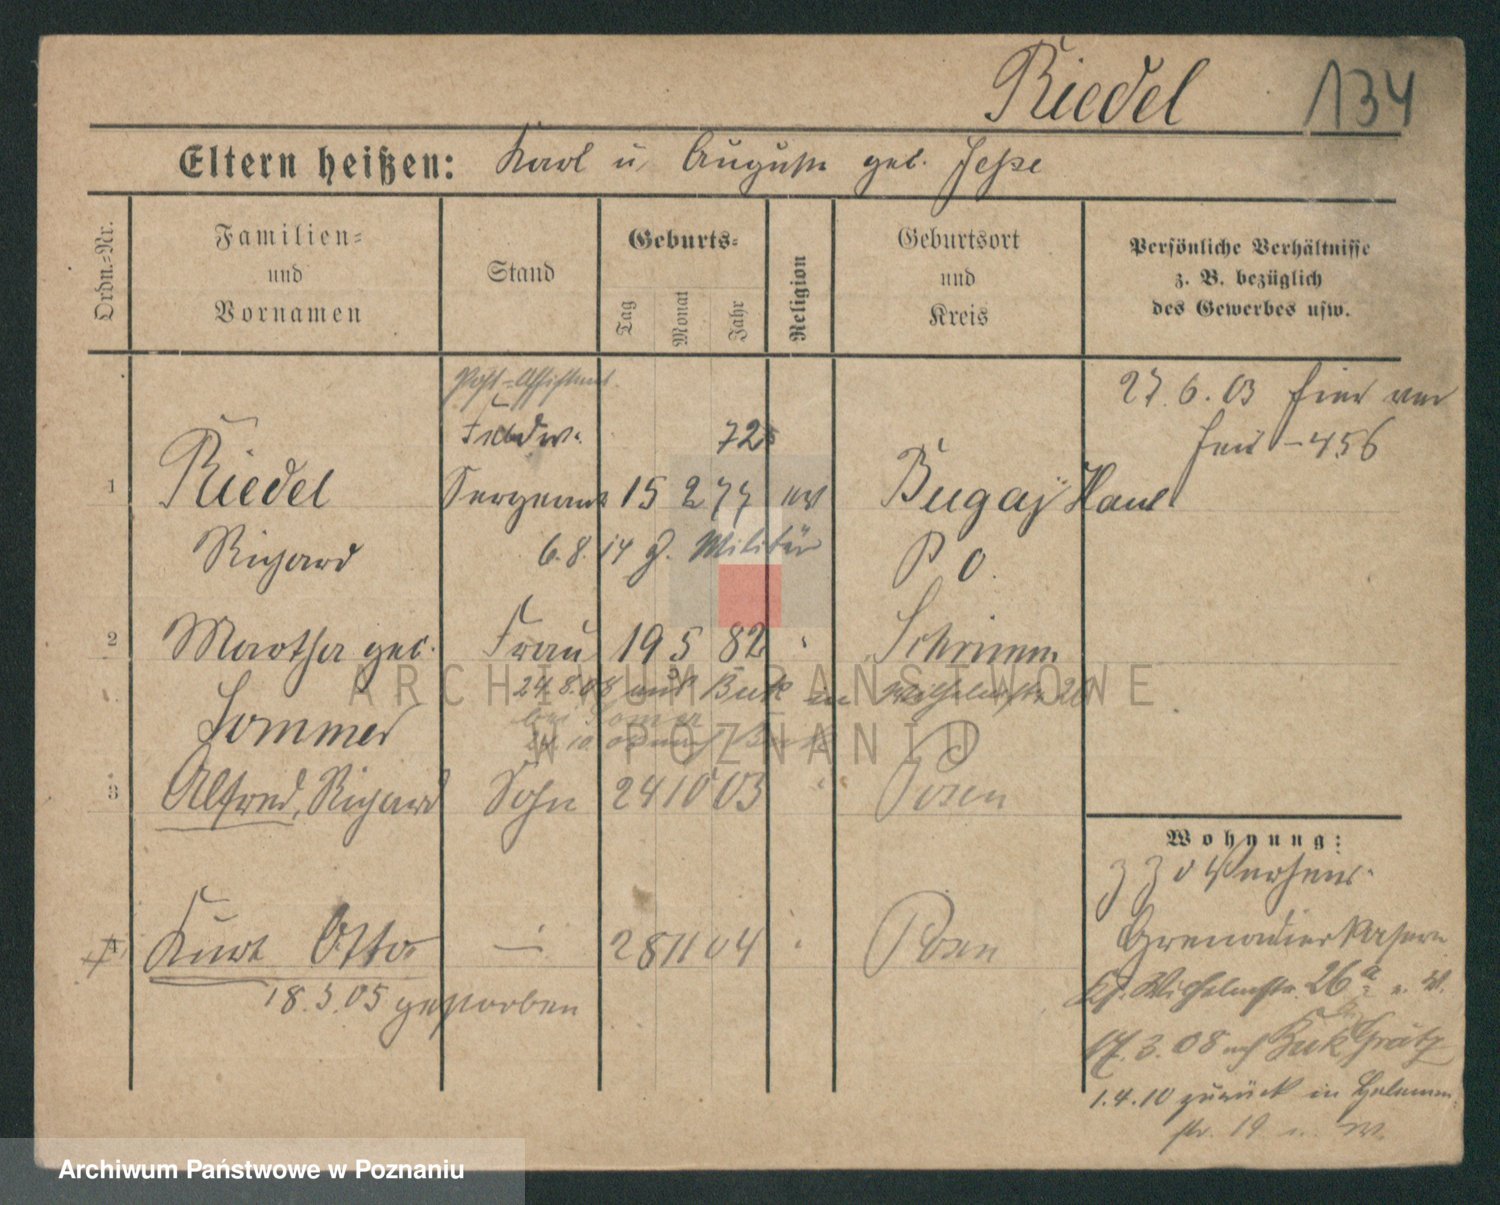 Riedel 134
Eltern heißen: Karl u. Auguste geb. Jeske
Ordn.-Nr.
Familien-
und
Vornamen
Stand
Geburts-
Tag
Monat
Jahr
Religion
Geburtsort
und
Kreis
Persönliche Verhältnisse
z. B. bezüglich
des Gewerbes usw.
Post-Assistent
27.6.03 hier
Feldw. 72
456
1 Riedel Sergeant 15 2 77 ev Bugaj
Richard 6.8.14 z. Militär P O.
2 Martha geb. Frau 19 5 82 Schrimm
24.8.08 aus Buk in Wilhelmstr 26
Sommer
3 Alfred, Richard Sohn 24 10 03 Posen
Wohnung:
4 Kurt Otto 28 11 04 Posen
Grenadier Kaserne
18.3.05 gestorben
Wilhelmstr. 26a
17.3.08 nach Buk Grätz
1.4.10 zurück in
str. 19
ARCHIWUM PAŃSTWOWE
W POZNANIU
Archiwum Państwowe w Poznaniu